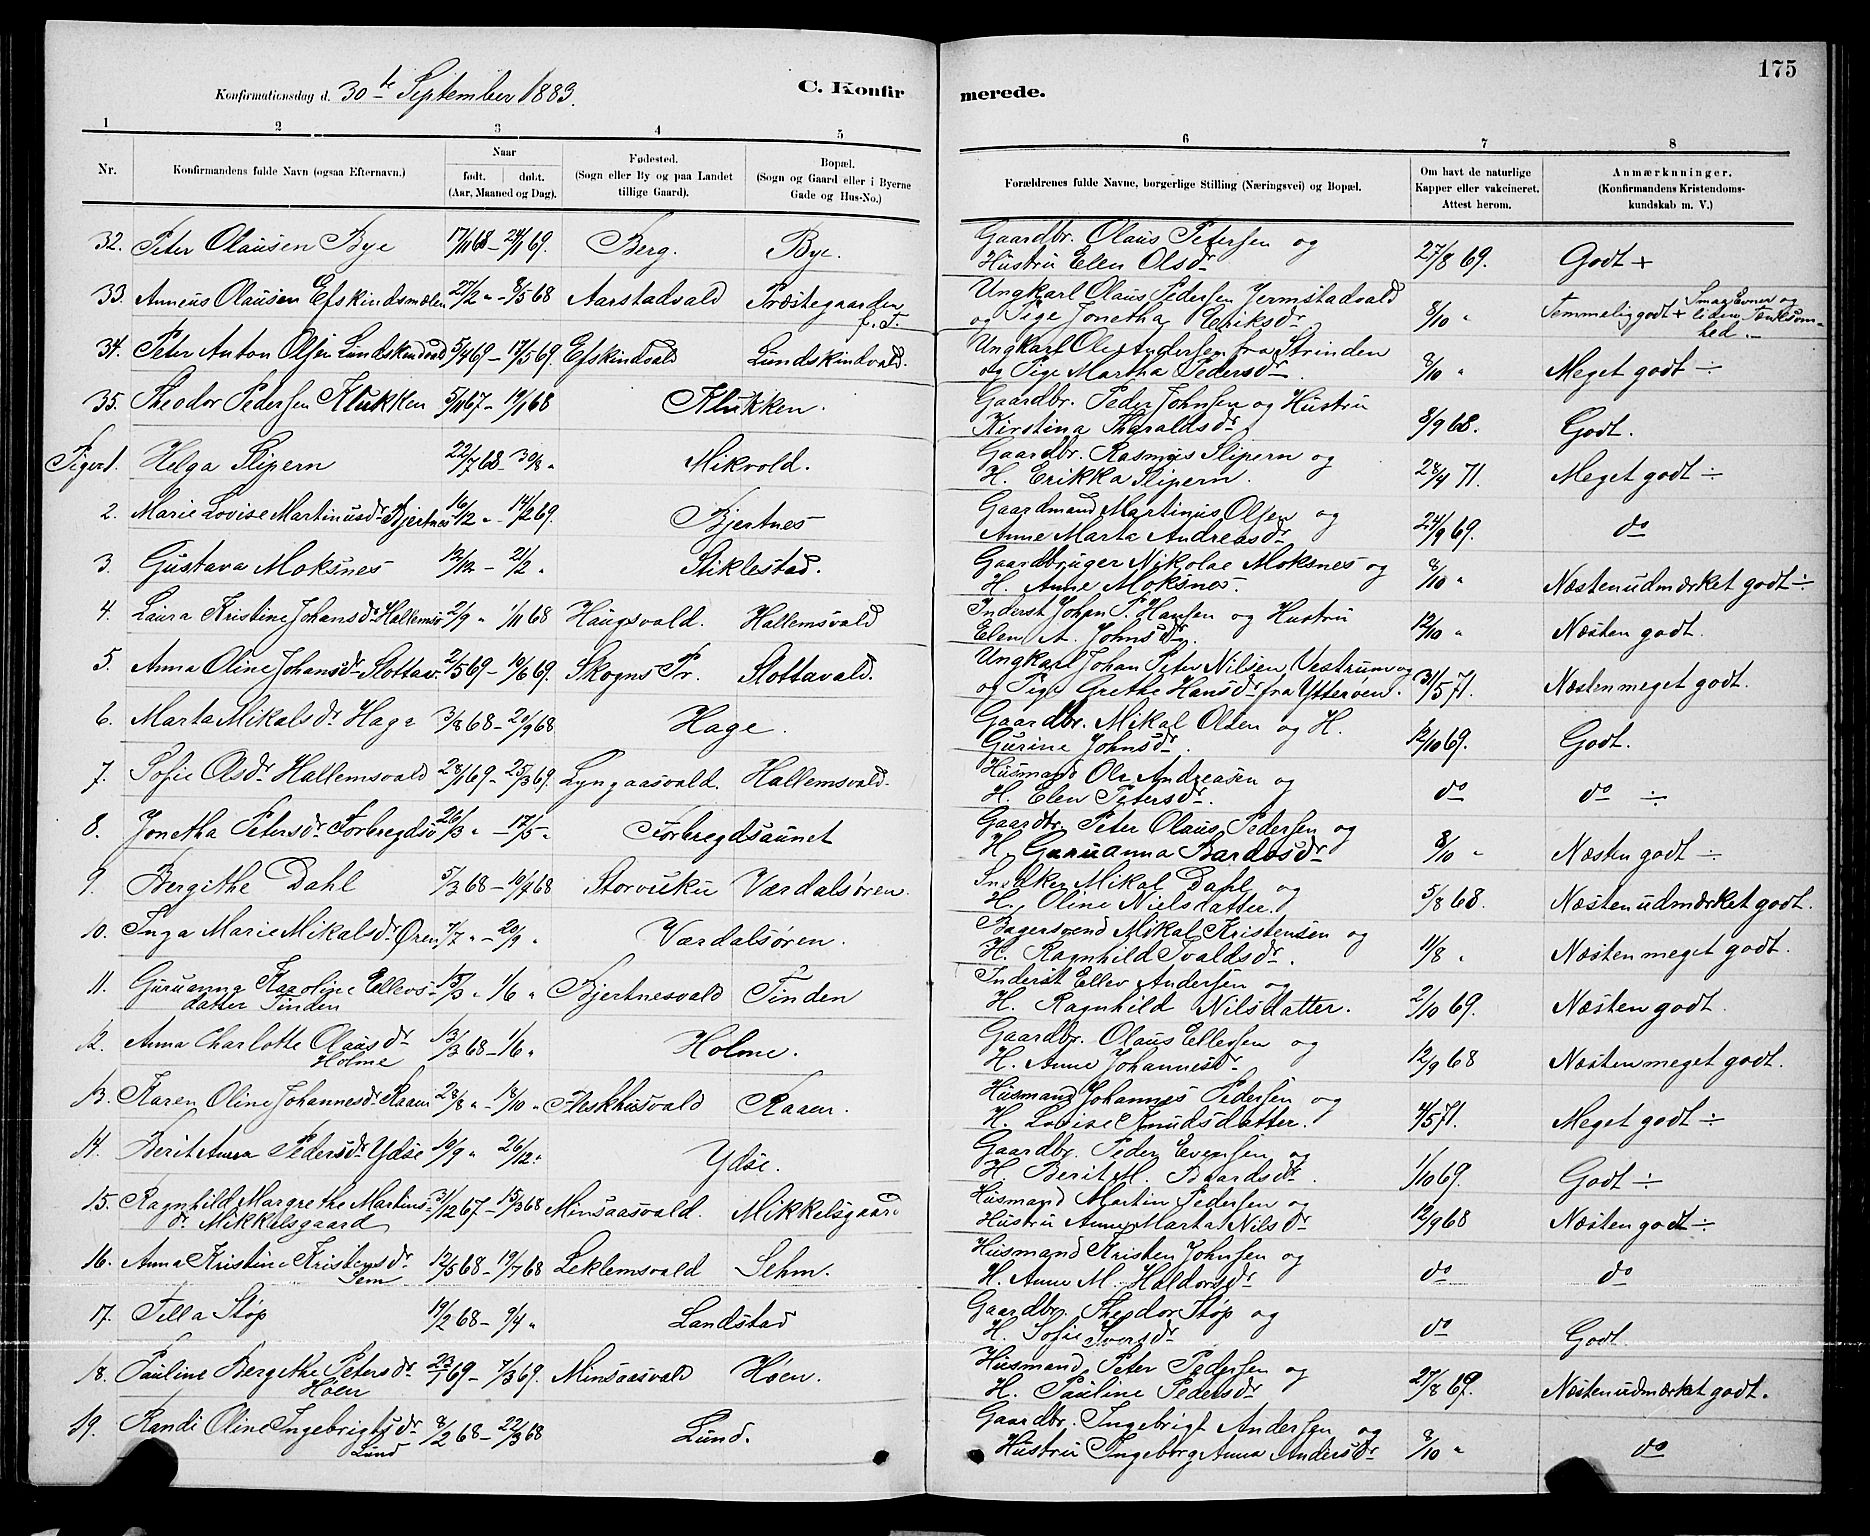 175
Konfirmationsdag d. 30te September 1883. C. Konfirmerede.
1 2 3 4 5 6 7 8
Nr. Konfirmandens fulde Navn (ogsaa Efternavn.) Naar født. døbt. (Aar, Maaned og Dag). Fødested. (Sogn eller By og paa Landet tillige Gaard). Bopæl. (Sogn og Gaard eller i Byerne Gade og Hus-No.) Forældrenes fulde Navne, borgerlige Stilling (Næringsvei) og Bopæl. Om havt de naturlige Kapper eller vakcineret. Attest herom. Anmærkninger. (Konfirmandens Kristendomskundskab m. V.)
32. Peter Olausen Bye 17/11 68 - 24/1 69. Berg. Bye. Gaardbr. Olaus Petersen og
Hustru Elen Olsdr 27/8 69. Godt +
33. Anneus Olausen Efskindsmælen 27/2 " - 8/5 68 Aarstadvald Præstegaarden f. T. Ungkarl Olaus Pedersen Jermstadvald
og Pige Jonetha Eriksdr 8/10 " Temmelig godt + Smaa Evner og liden Tænksomhed. -
34. Peter Anton Olsen Lundskindvald 5/4 69 - 17/5 69. Efskindvald Lundskindvald. Ungkarl Ole Andersen fra Strinden
og Pige Martha Pedersdr. 8/10 " Meget godt ÷
35. Theodor Pedersen Klukken 5/11 67 - 19/1 68 Klukken. Gaardbr. Peder Johnsen og Hustru
Kirstina Tharaldsdr 8/9 68. Godt.
Piger 1. Helga Slipern 22/7 68 - 30/8 " Mikvold. Gaardbr. Rasmus Slipern og
H. Erikka Slipern. 28/9 71. Meget godt ÷
2. Marie Lovise Martinusdr Bjertnes 16/12 " - 14/2 69. Bjertnes Gaardmand Martinus Olsen og
Anne Marta Andreasdr 24/9 69. do
3. Gustava Moksnes 12/12 - 21/2 " Stiklestad. Gaardbruger Nikolae Moksnes og
H. Anne Moksnes. 8/10 " Næsten udmærket godt ÷
4. Laura Kristine Johansdr Hallemsv 2/9 " 1/11 68 Haugsvald. Hallemsvald Inderst Johan P. Hansen og Hustru
Elen A. Johnsdr. 12/10 " Næsten godt.
5. Anna Oline Johansdr Slottav. 2/5 69 - 10/6 69. Skogns Pr. Slottavald. Ungkarl Johan Peter Nilsen Vestrum og
og Pige Grethe Hansdr fra Ytterøen. 31/5 71. Næsten meget godt.
6. Marta Mikalsdr Hage 3/8 68 - 20/9 68 Hage. Gaardbr. Mikal Olsen og H.
Gurine Johnsdr. 12/10 69. Godt.
7. Sofie Olsdr Hallemsvald 28/1 69 - 25/3 69. Lyngaasvald. Hallemsvald. Husmand Ole Andreasen og
H. Elen Petersdr. do do ÷
8. Jonetha Petersdr Forbregdsv 26/3 " - 17/5 " Forbregdsaunet Gaardbr. Peter Olaus Pedersen og
H. Guruanna Bardosdr 8/10 " Næsten godt ÷
9. Bergithe Dahl 5/3 68 - 19/7 68 Storvuku Værdalsøren. Snedker Mikal Dahl og
H. Oline Nielsdatter. 5/8 68. Næsten udmærket godt.
10. Inga Marie Mikalsdr Øren 7/7 " - 20/9 " Værdalsøren. Bagersvend Mikal Kristensen og
H. Ragnhild Ivaldsdr. 11/8 " Næsten meget godt.
11. Guruanna Karoline Ellevs-
datter Tinden 15/3 " 1/6 " Bjertnesvald Tinden Inderst Ellev Andersen og
H. Ragnhild Nilsdatter. 2/10 69. Næsten godt.
12. Anna Charlotte Olausdr
Holme 13/3 68 - 1/6 " Holme. Gaardbr. Olaus Ellevsen og
H. Anne Johannesdr 12/9 68 Næsten meget godt.
13. Karen Oline Johannesdr Raaen 28/8 " - 18/10 " Fleskhusvald Raaen. Husmand Johannes Pedersen og
H. Lovise Knudsdatter. 4/5 71. Meget godt ÷
14. Berit Anna Pedersdr Ydse 19/9 " 26/12 " Ydse. Gaardbr. Peder Evensen og
H. Berit M. Baardsdr. 1/10 69. Godt ÷
15. Ragnhild Margrethe Martins-
dr. Mikkelsgaard 31/12 67 - 15/3 68 Minsaasvald. Mikkelsgaard Husmand Martin Pedersen og
Hustru Anne Marta Nilsdr 12/9 68 Næsten godt ÷
16. Anna Kristine Kristensdr
Sem 12/5 68 - 19/7 68 Leklemsvald Sehm. Husmand Kristen Johnsen og
H. Anne M. Haldorsdr do do
17. Tella Støp 19/2 68 - 9/4 " Landstad Gaardbr. Theodor Støp og
H. Sofie Iversdr do Godt.
18. Pauline Bergithe Petersdr
Høen 23/1 69 - 7/3 69. Minsaasvald Høen. Husmand Peter Pedersen og
H. Pauline Pedersdr 27/8 69. Næsten udmærket godt.
19. Randi Oline Ingebrigtsdr
Lund 8/2 68 - 22/3 68 Lund. Gaardbr. Ingebrigt Andersen og
Hustru Ingeborg Anna Andersdr 8/10 " do